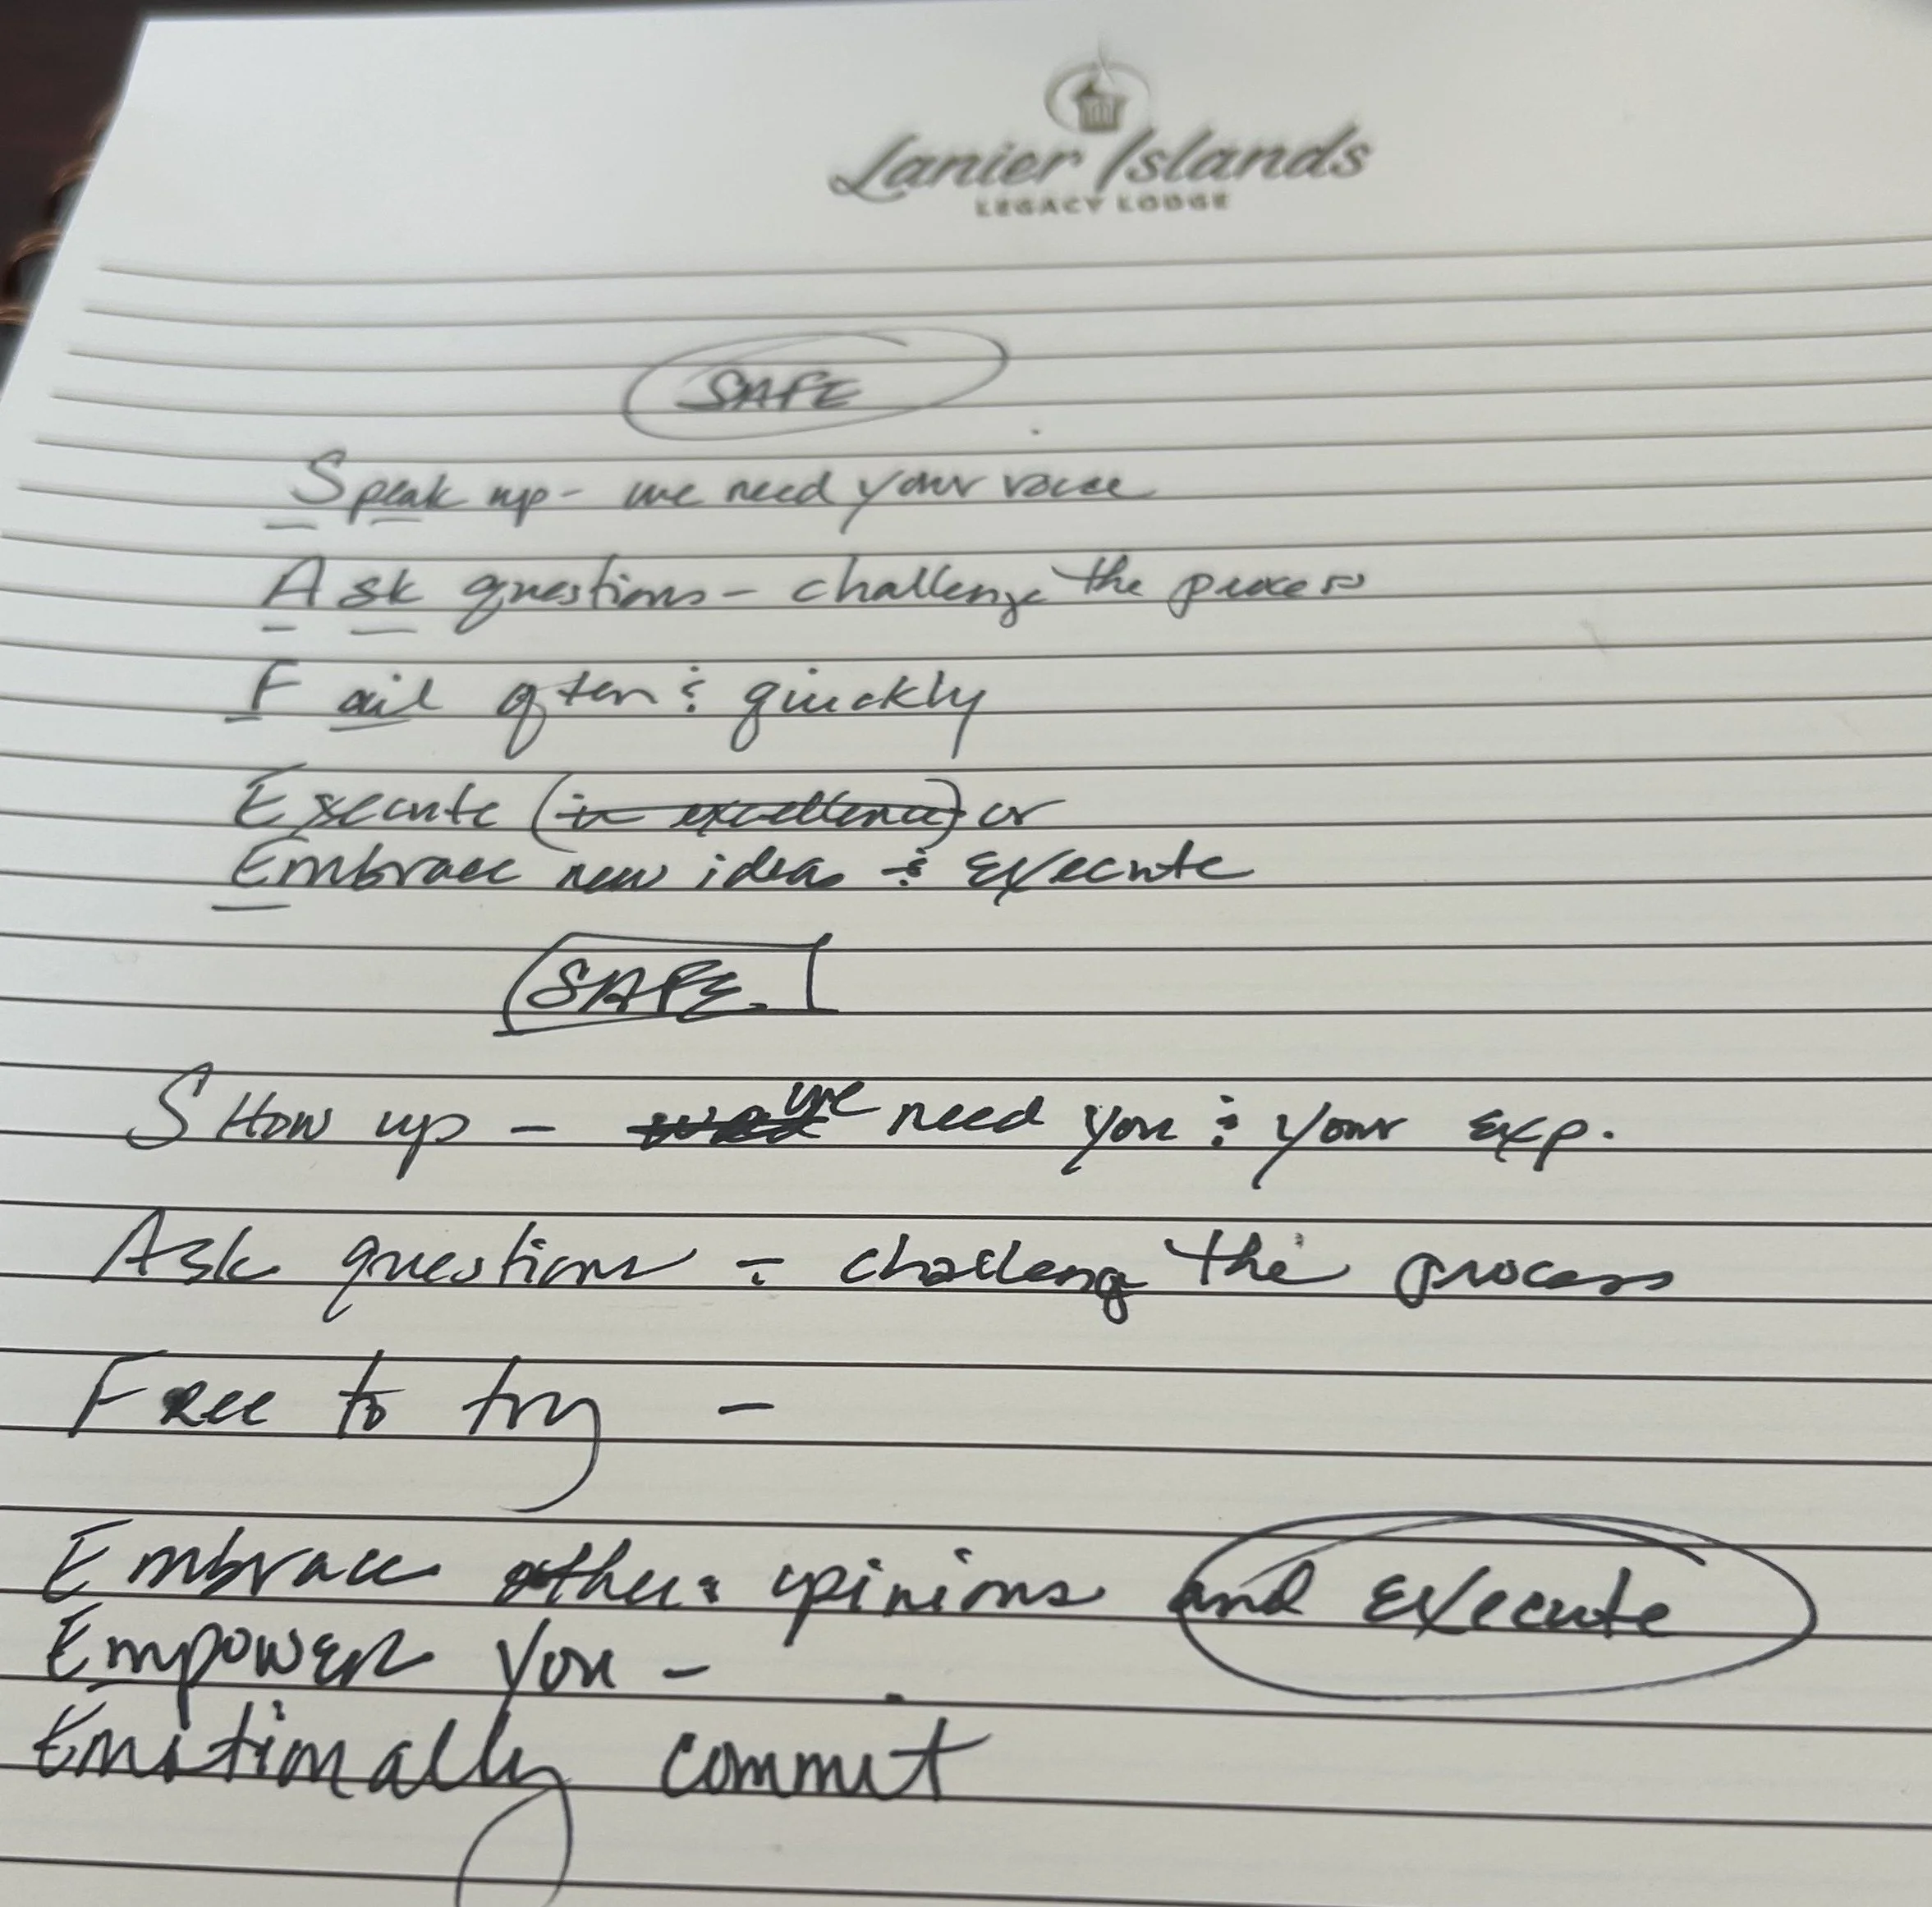 Lanier Islands
LEGACY LODGE
SAFE
Speak up - we need your voice
Ask questions - challenge the process
Fail often & quickly
Execute (in excellence) or
Embrace new ideas & execute
SAFE
SHow up - we need you & your exp.
Ask questions - challenge the process
FRee to try -
Embrace others opinions and execute
Empower you -
Emotionally commit